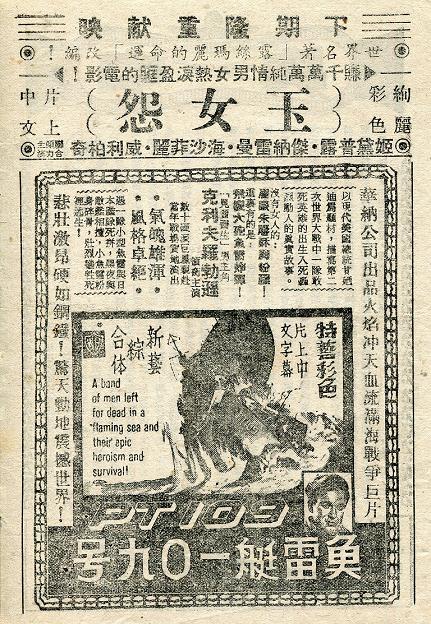 下期隆重献映
世界名著「露絲瑪麗的命運」改編!
賺千萬萬純情男女熱淚盈眶的電影!
絢麗
彩色
玉女怨
片上
中文
姬黛普露・傑納雷曼・海沙菲麗・威利柏奇
華納公司出品火焰冲天血流滿海戰爭巨片
以現代美國總統甘迺
迪為題材,描寫第二
次世界大戰中一隊敢
死英雄的出生入死轟
烈動人的真實故事。
沒有女人的:
克利夫羅勃遜
領銜主演
當年戰場實地演出
氣魄雄渾
風格卓絕
悲壯激昂硬如鋼鐵!驚天動地震撼世界!
特藝彩色
片上中
文字幕
新藝
綜
合体
A band
of men left
for dead in a
flaming sea and
their epic
heroism and
survival!
PT 109
魚雷艇一〇九号